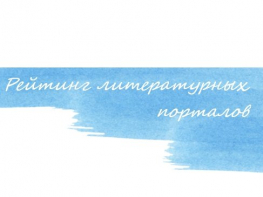 Рейтинг литературных
порталов